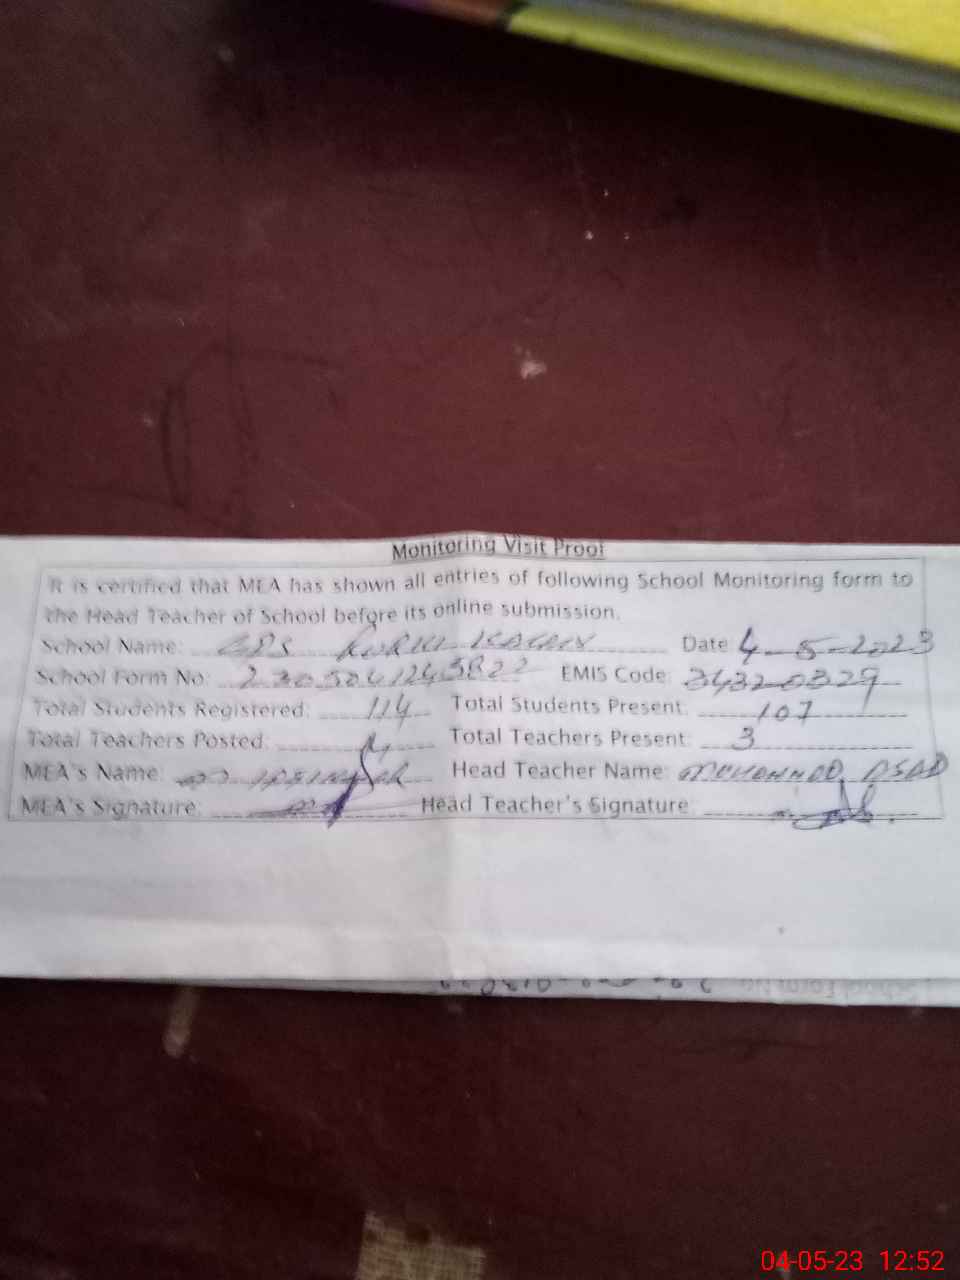 Monitoring Visit Proof
It is certified that MEA has shown all entries of following School Monitoring form to
the Head Teacher of School before its online submission.
School Name: GPS Date 4-5-2023
School Form No: EMIS Code: 34320329
Total Students Registered: 114 Total Students Present: 107
Total Teachers Posted: Total Teachers Present: 3
MEA's Name: Head Teacher Name: MUHAMMAD ASAD
MEA's Signature: Head Teacher's Signature:
School Form No
04-05-23 12:52